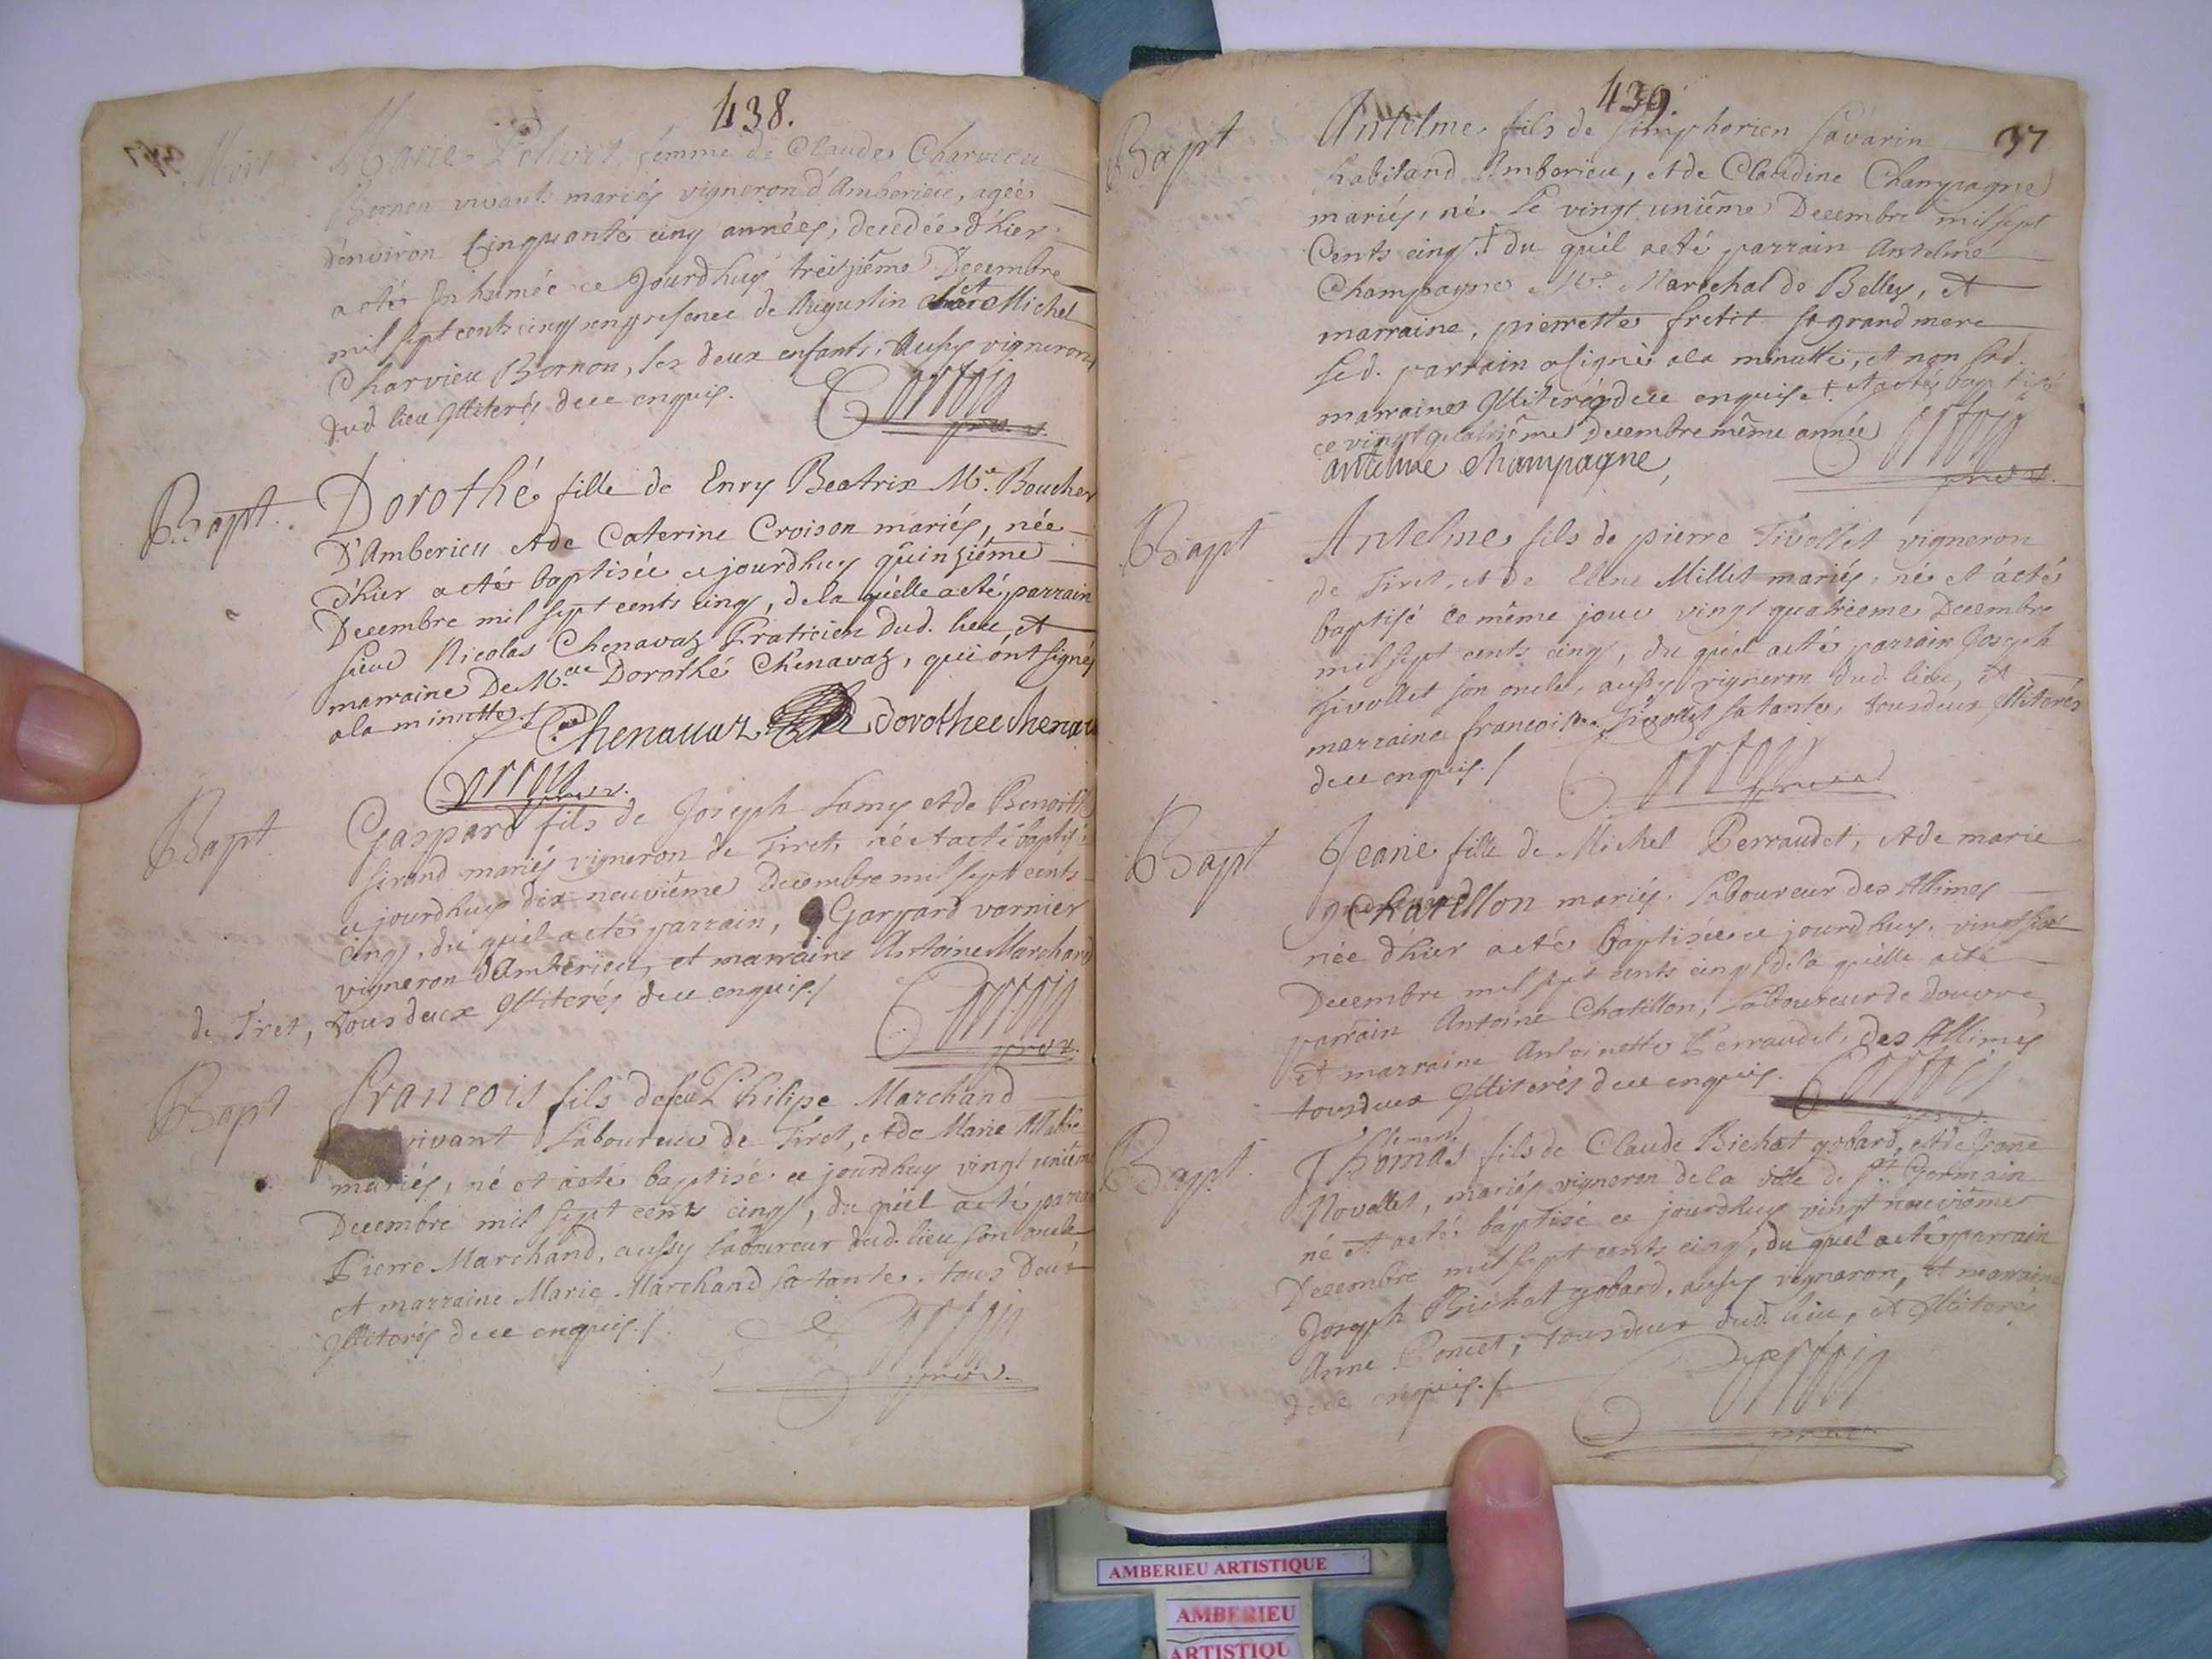 438.
Mort
Marie femme de Claude Charvieu
Bornon vivants mariés vigneron d'Amberieu, agée
d'environ Cinquante cinq années, decedée d'hier
a etés Inhumée ce Jourdhuy treizième Decembre
mil sept cents cinq en presence de Augustin et Michel
Charvieu Bornon, ses deux enfants, Aussy vignerons
dud. lieu Illiterés dece enquis.
Bapt.
Dorothé fille de Enry Beatrix Me. Boucher
D'Amberieu et de Caterine Croison mariés, née
d'hier a etés baptisée ce jourdhuy quinziéme
Decembre mil sept cents cinq, de la quélle a eté parrain
sieur Nicolas Chenavaz Praticien dud. lieu, et
marraine De Mlle Dorothé Chenavaz, qui ont signés
a la minutte.
Chenauaz dorothee chenau
Bapt
Gaspard fils de Joseph Lamy et de Benoite
Sirand mariés vigneron de Tiret, né et a eté baptisé
ce jourdhuy dix neuviéme Decembre mil sept cents
cinq, du quél a etés parrain, Gaspard varnier
vigneron d'Amberieu, et marraine Antoine Marchand
de Tiret, tous deux Illiterés dece enquis./
Bapt
Francois fils de feu Philipe Marchand
vivant Laboureur de Tiret, et de Marie
mariés, né et a eté baptisé ce jourdhuy vingt uniéme
Decembre mil sept cents cinq, du quél a eté parrain
Pierre Marchand, aussy Laboureur dud. lieu son oncle
et marraine Marie Marchand sa tante, tous Deux
Illiterés dece enquis./.
439.
37
Bapt
Antelme fils de Simphorien Savarin
habitand Amberieu, et de Claudine Champagne
mariés, né Le vingt uniême Decembre mil sept
Cents cinq † du quél a eté parrain Antelme
Champagne Me. Marechal de Belley, et
marraine, pierrette fretit sa grand mere
Led. parrain a signé a la minutte, et non lad.
marraine Illiterée dece enquise. † et a etés baptisé
ce vingt quatriême Decembre même année
antelme champagne,
Bapt
Antelme fils de pierre Tivollet vigneron
de Tiret, et de Elene Millet mariés, né et a eté
baptisé ce même jour vingt quatrieme Decembre
mil sept cents cinq, du quél a etés parrain Joseph
Tivollet son oncle, aussy vigneron dud. lieu, et
marraine francoise Tivollet sa tante, tous deux Illiterés
dece enquis./
Bapt
Jeane fille de Michel Perraudet, et de marie
Chatillon mariés, Laboureur des Allimes
née d'hier a etés baptisée ce jourdhuy, vingt six
Decembre mil sept cents cinq, de la quélle a eté
parrain Antoine Chatillon, Laboureur de douvre,
et marraine Antoinette Perraudet, des Allimes
tous deux Illiterés dece enquis.
Bapt.
Thomas fils de Claude Bichat gobard, et de Jane
Novellet, mariés vigneron de la ville de St. Germain
né et a etés baptisé ce jourdhuy vingt neuviême
Decembre mil sept cents cinq, du quel a eté parrain
Joseph Bichat gobard, aussy vigneron, et marraine
Anne Poncet, tous deux dud. lieu, et Illiterés
dece enquis./.
AMBERIEU ARTISTIQUE
AMBERIEU
ARTISTIQU